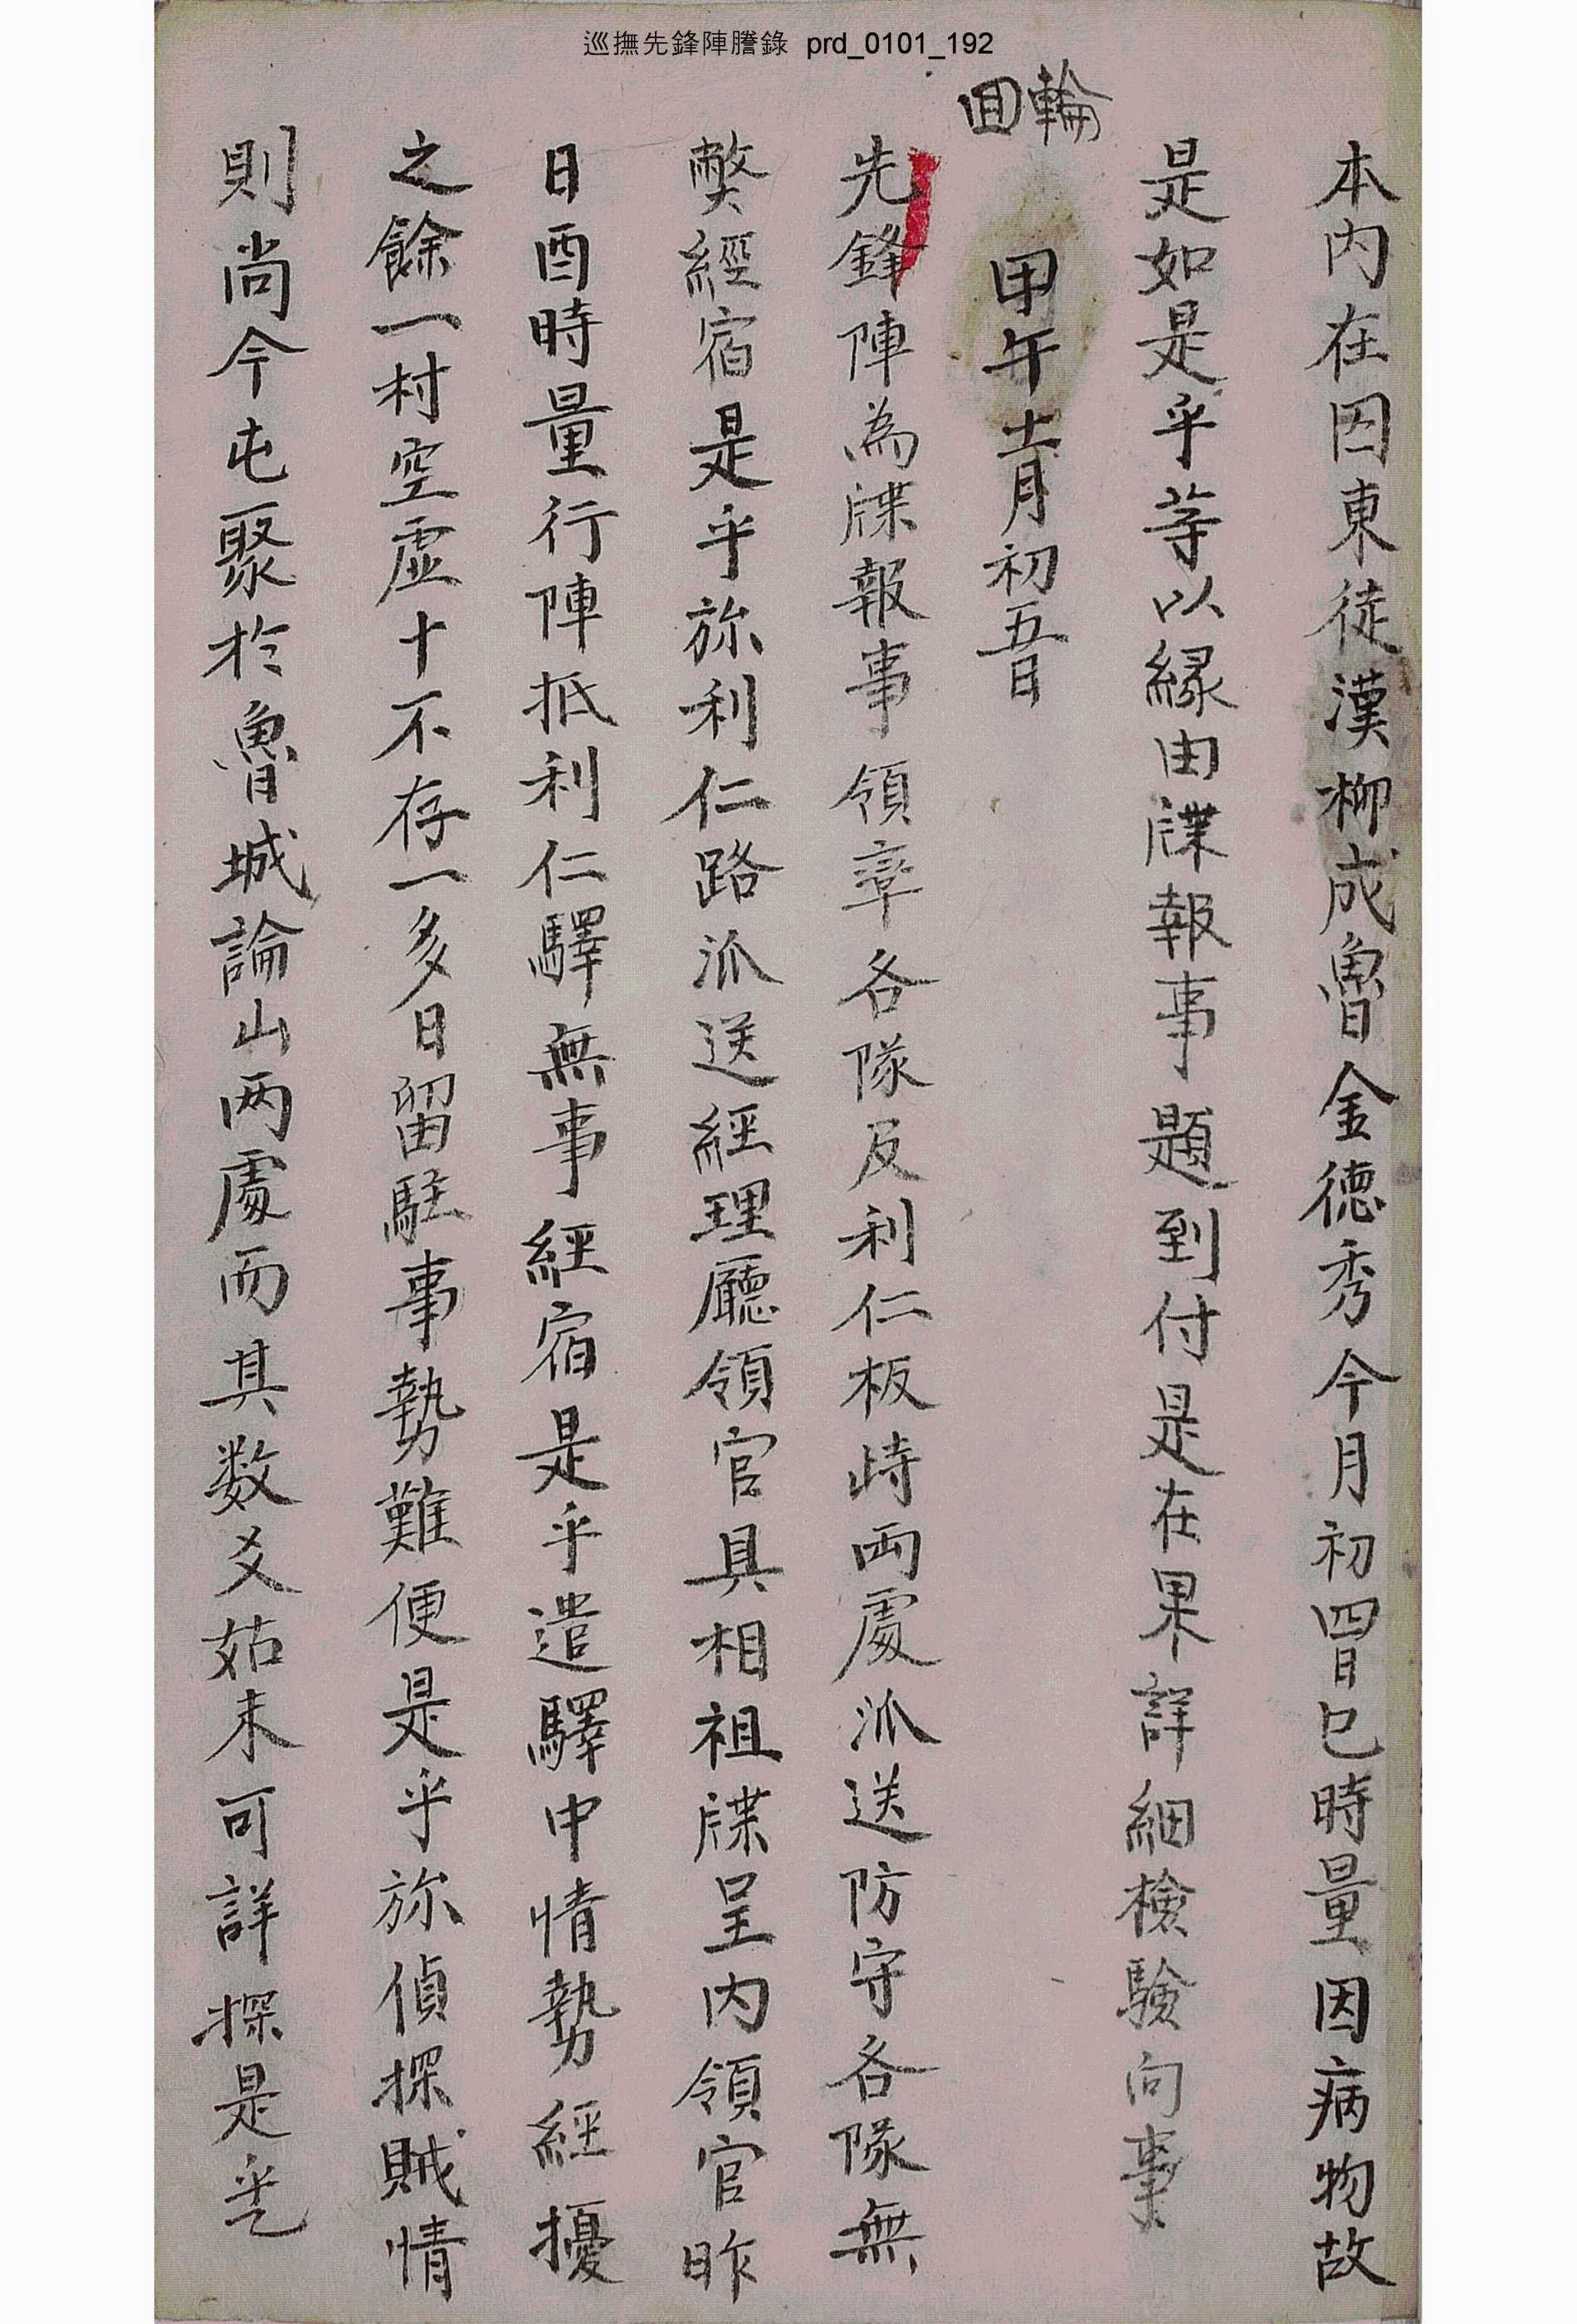 巡撫先鋒陣謄錄 prd_0101_192
本內在囚東徒漢柳成魯金德秀今月初四日巳時量因病物故
是如是乎等以緣由牒報事題到付是在果詳細檢驗向事
輪回
甲午十一月初五日
先鋒陣為牒報事領率各隊及利仁板峙両處派送防守各隊無
弊經宿是乎旀利仁路派送經理廳領官具相祖牒呈內領官昨
日酉時量行陣抵利仁驛無事經宿是乎遣驛中情勢經擾
之餘一村空虛十不存一多日留駐事勢難便是乎旀偵探賊情
則尚今屯聚於魯城論山両處而其数爻姑未可詳探是乎乙